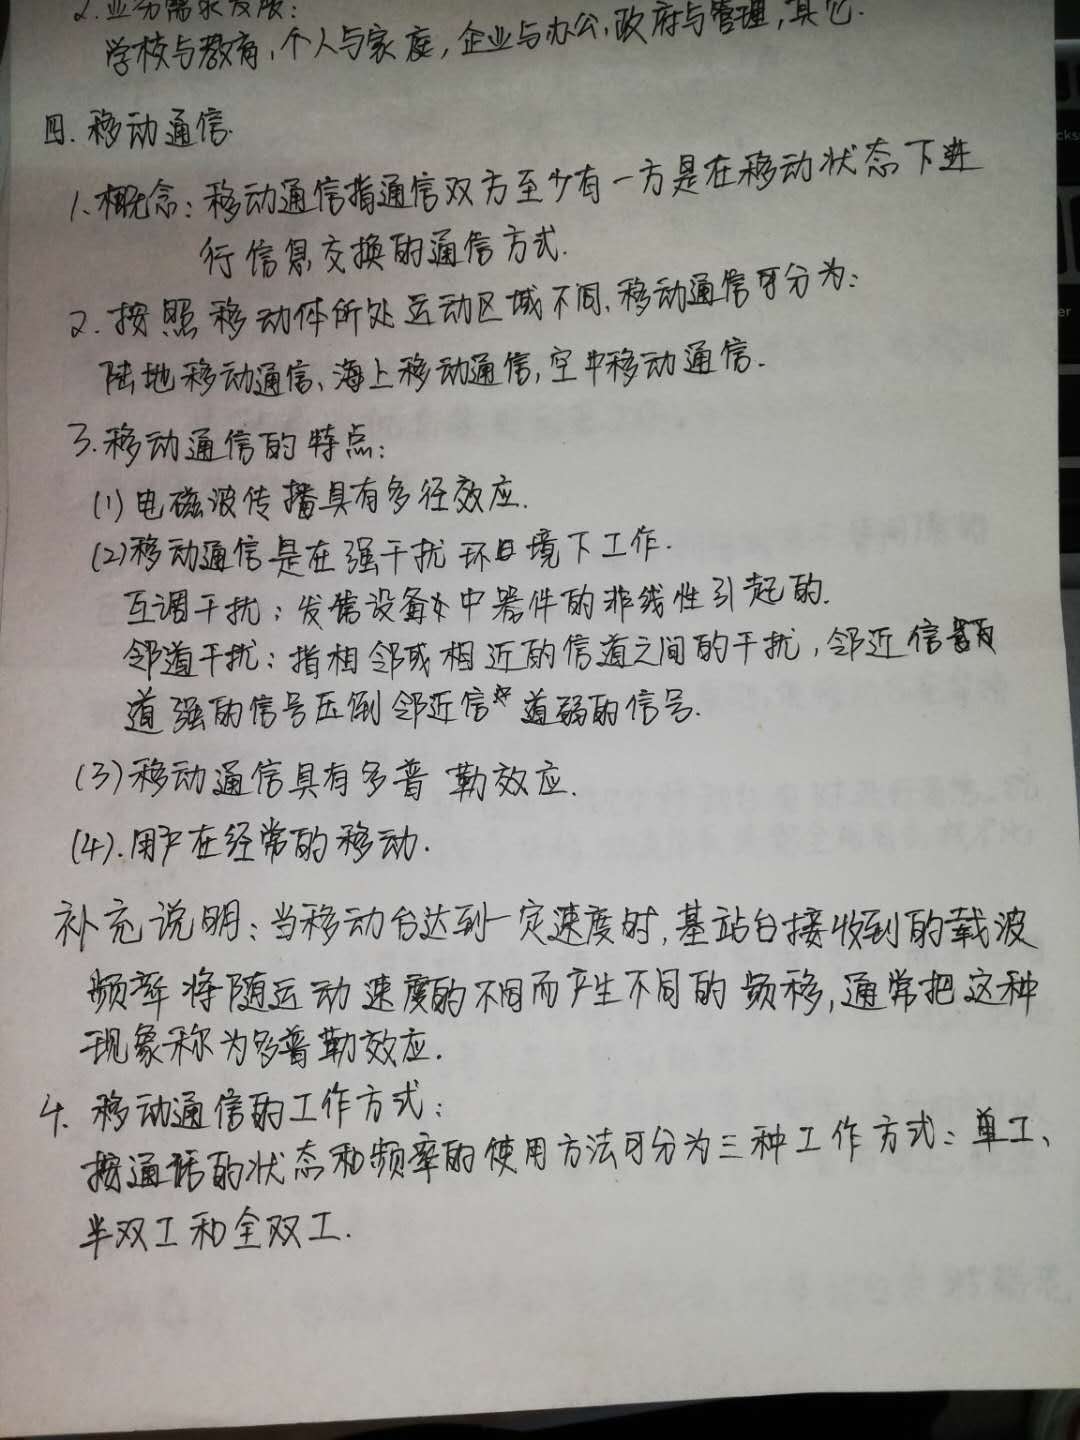 2.业务需求发展:
学校与教育,个人与家庭,企业与办公,政府与管理,其它.
四.移动通信.
1、概念:移动通信指通信双方至少有一方是在移动状态下进
行信息交换的通信方式.
2.按照移动体所处运动区域不同,移动通信可分为:
陆地移动通信、海上移动通信,空中移动通信.
3.移动通信的特点:
(1)电磁波传播具有多径效应.
(2)移动通信是在强干扰环境下工作.
互调干扰:发信设备中器件的非线性引起的.
邻道干扰:指相邻或相近的信道之间的干扰,邻近信
道强的信号压倒邻近信道弱的信号.
(3)移动通信具有多普勒效应.
(4).用户在经常的移动.
补充说明:当移动台达到一定速度时,基站台接收到的载波
频率将随运动速度的不同而产生不同的频移,通常把这种
现象称为多普勒效应.
4.移动通信的工作方式:
按通话的状态和频率的使用方法可分为三种工作方式:单工、
半双工和全双工.